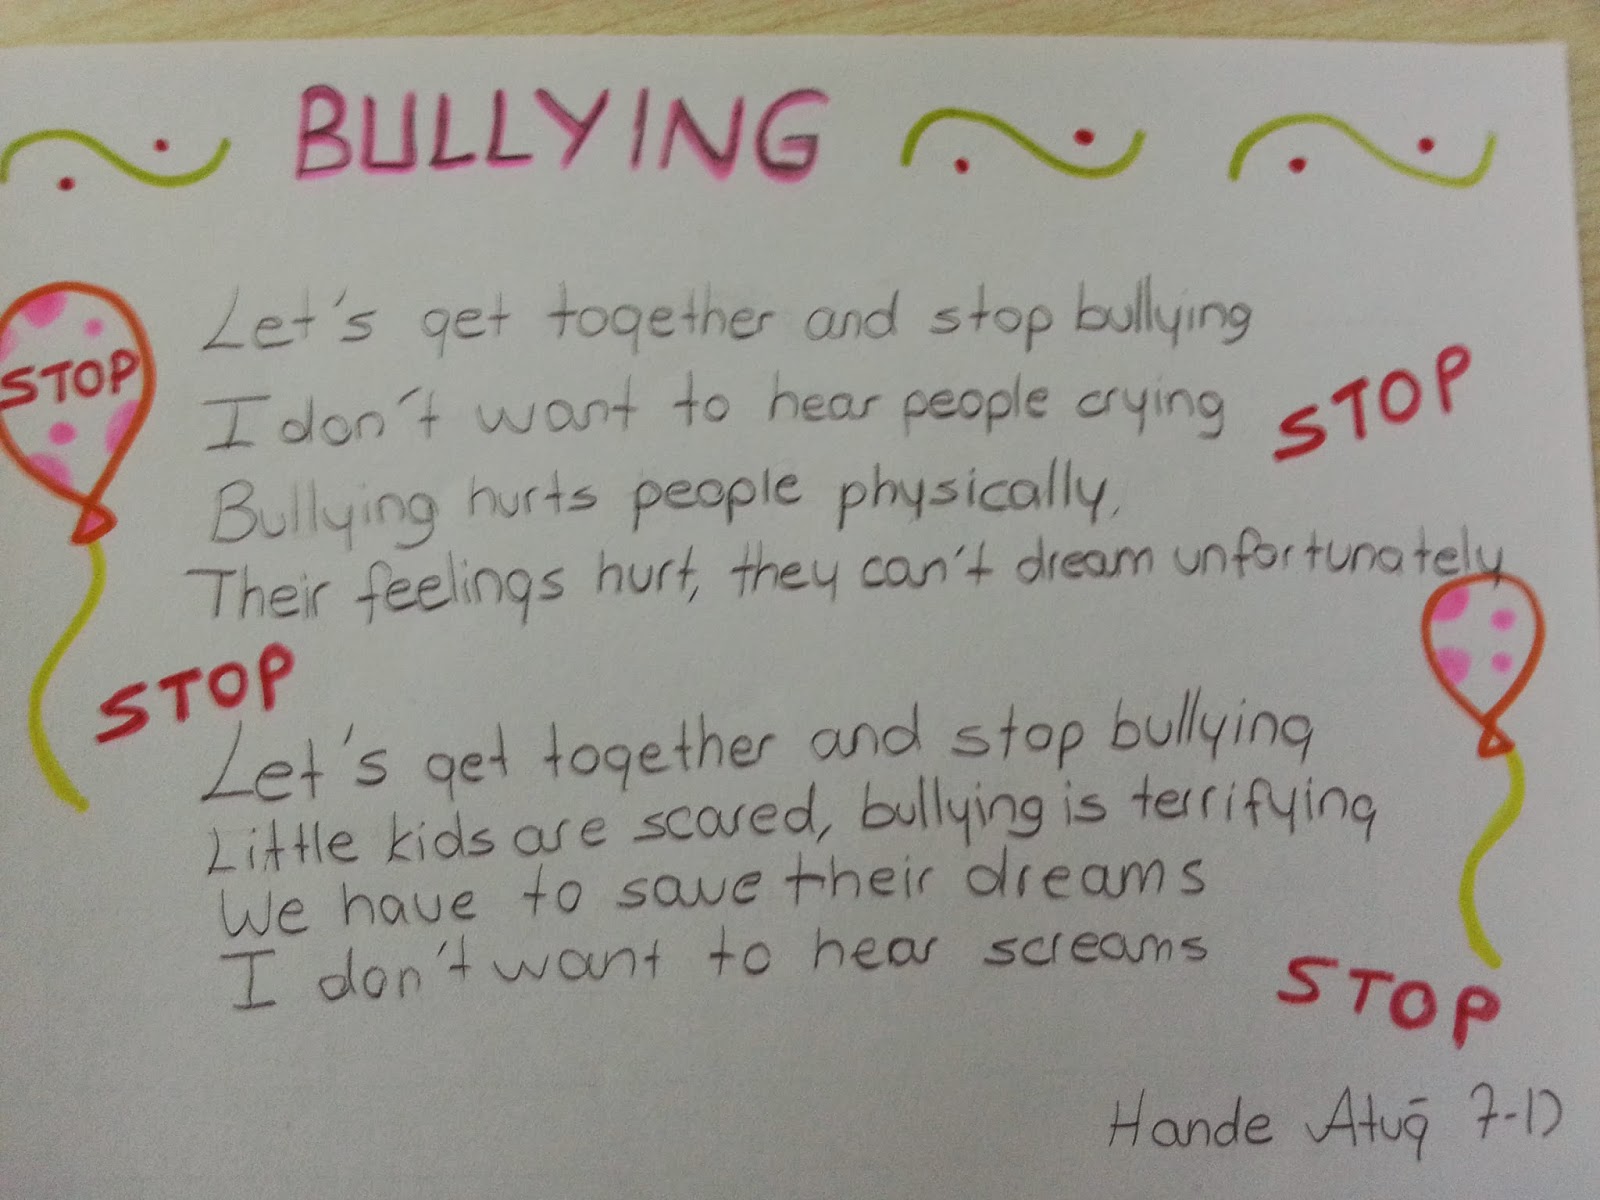 BULLYING
Let's get together and stop bullying
STOP
I don't want to hear people crying
STOP
Bullying hurts people physically,
Their feelings hurt, they can't dream unfortunately
STOP
Let's get together and stop bullying
Little kids are scared, bullying is terrifying
We have to save their dreams
I don't want to hear screams
STOP
Hande Atuğ 7-D